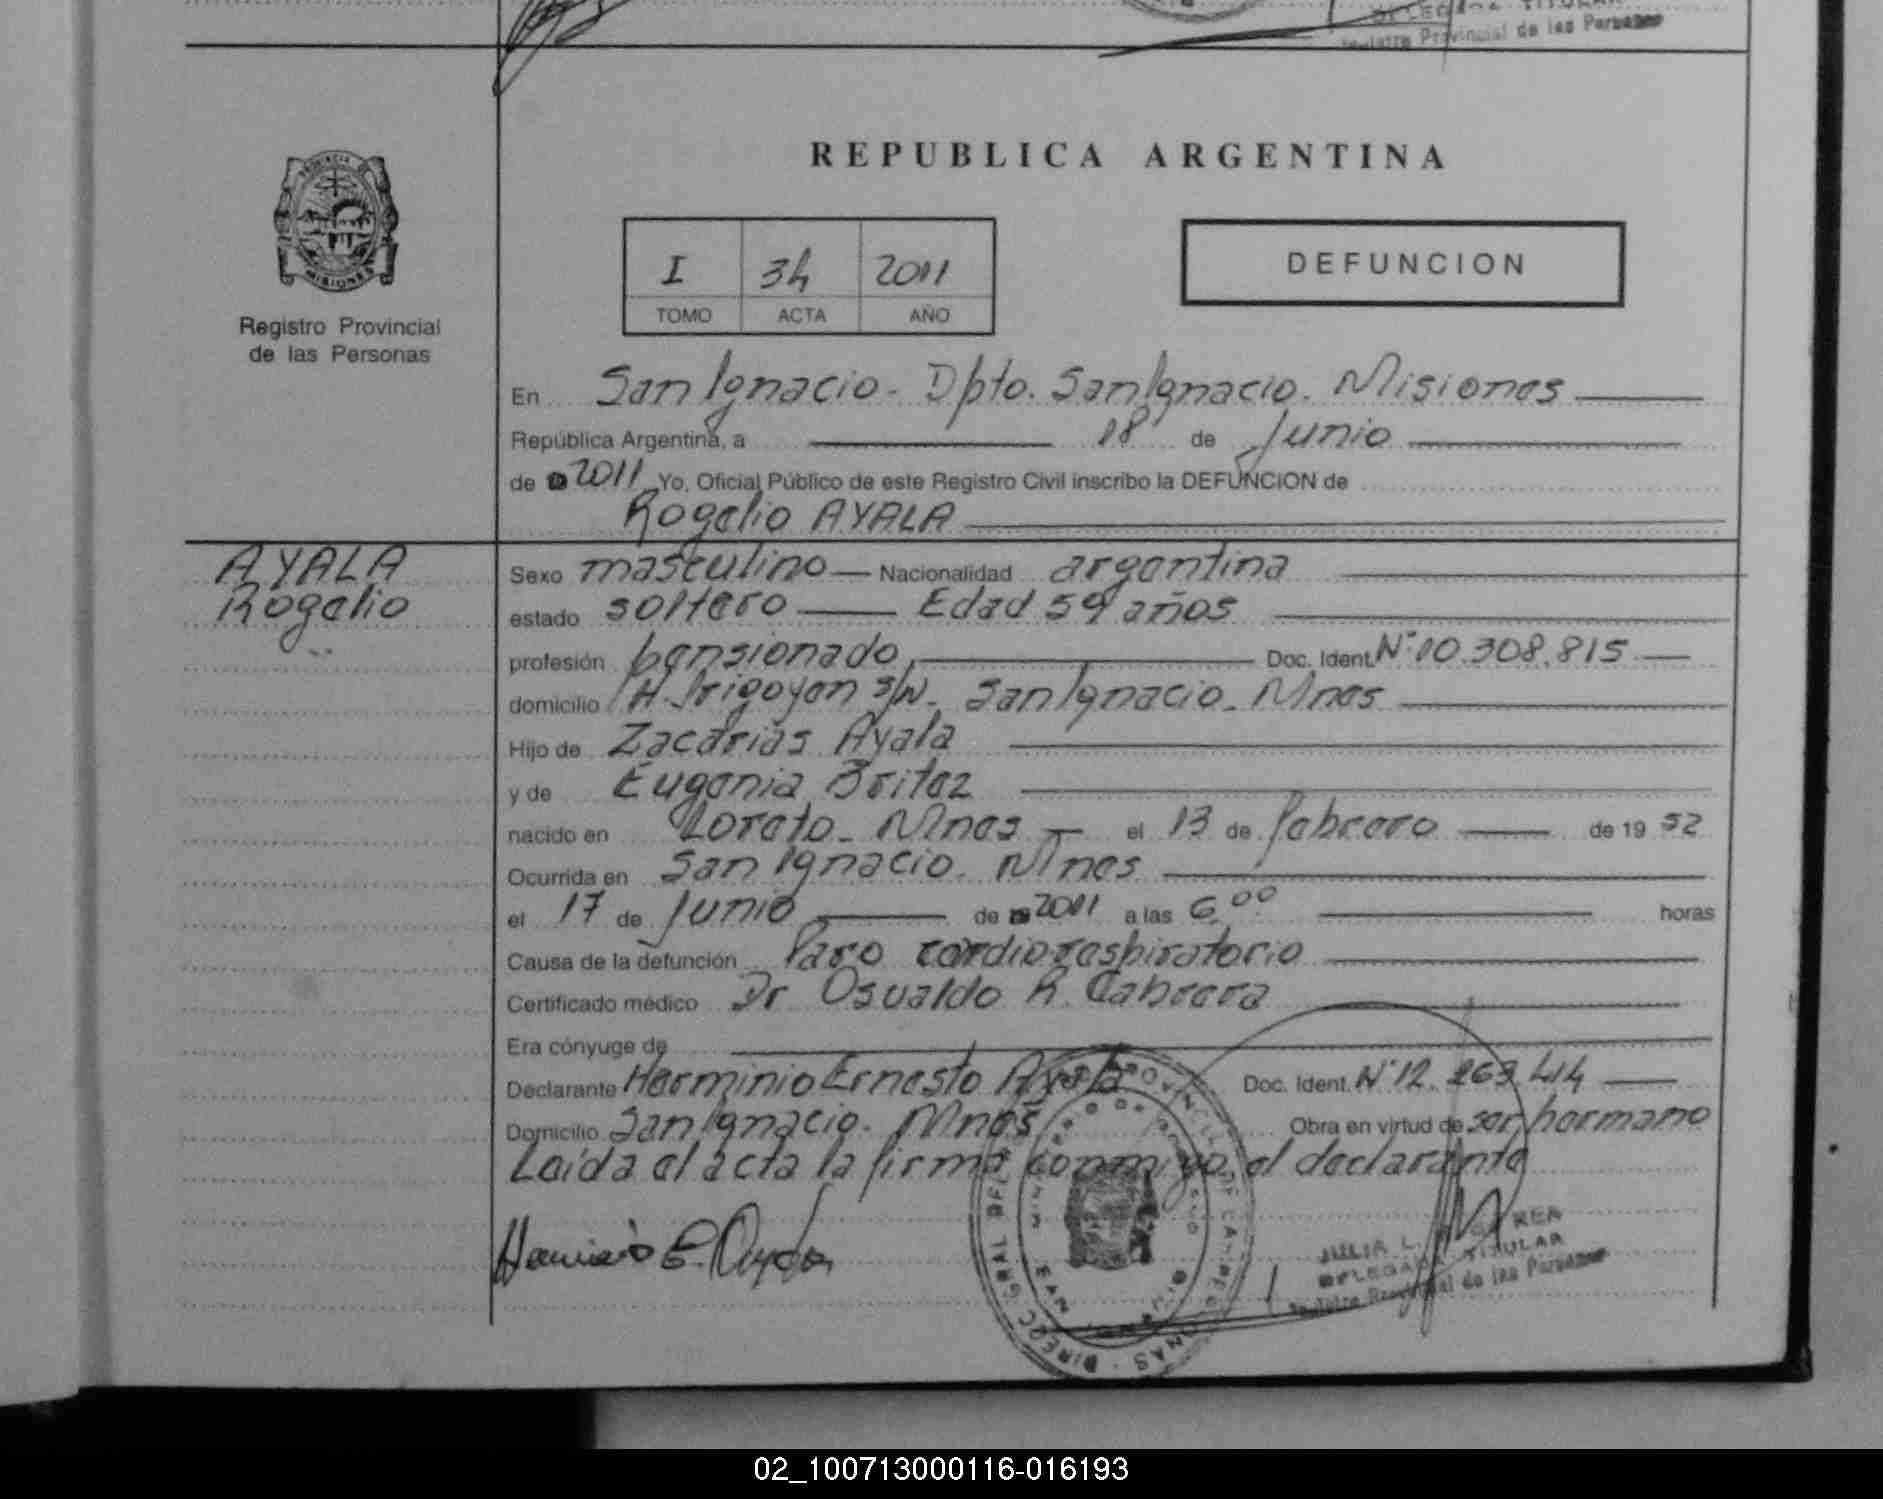 DELEGADA TITULAR
Registro Provincial de las Personas
PROVINCIA
MISIONES
Registro Provincial
de las Personas
REPUBLICA ARGENTINA
I 34 2011
TOMO ACTA AÑO
DEFUNCION
En San Ignacio - Dpto. San Ignacio. Misiones
República Argentina, a 18 de Junio
de 2011 Yo, Oficial Público de este Registro Civil inscribo la DEFUNCION de
Rogelio AYALA
AYALA
Rogelio
Sexo masculino Nacionalidad argentina
estado soltero Edad 59 años
profesión pensionado Doc. Ident. Nº 10.308.815
domicilio H. Irigoyen s/n. San Ignacio. Mnes
Hijo de Zacarias Ayala
y de Eugenia Britez
nacido en Loreto - Mnes el 13 de febrero de 19 52
Ocurrida en San Ignacio. Mnes
el 17 de Junio de 2011 a las 6.00 horas
Causa de la defunción Paro cardiorespiratorio
Certificado médico Dr Osvaldo R. Cabrera
Era cónyuge de
Declarante Herminio Ernesto Ayala Doc. Ident. Nº 12.263.414
Domicilio San Ignacio. Mnes Obra en virtud de ser hermano
Leída el acta la firma conmigo el declarante
Herminio E. Ayala
JULIA L.
DELEGADA TITULAR
Registro Provincial de las Personas
02_100713000116-016193